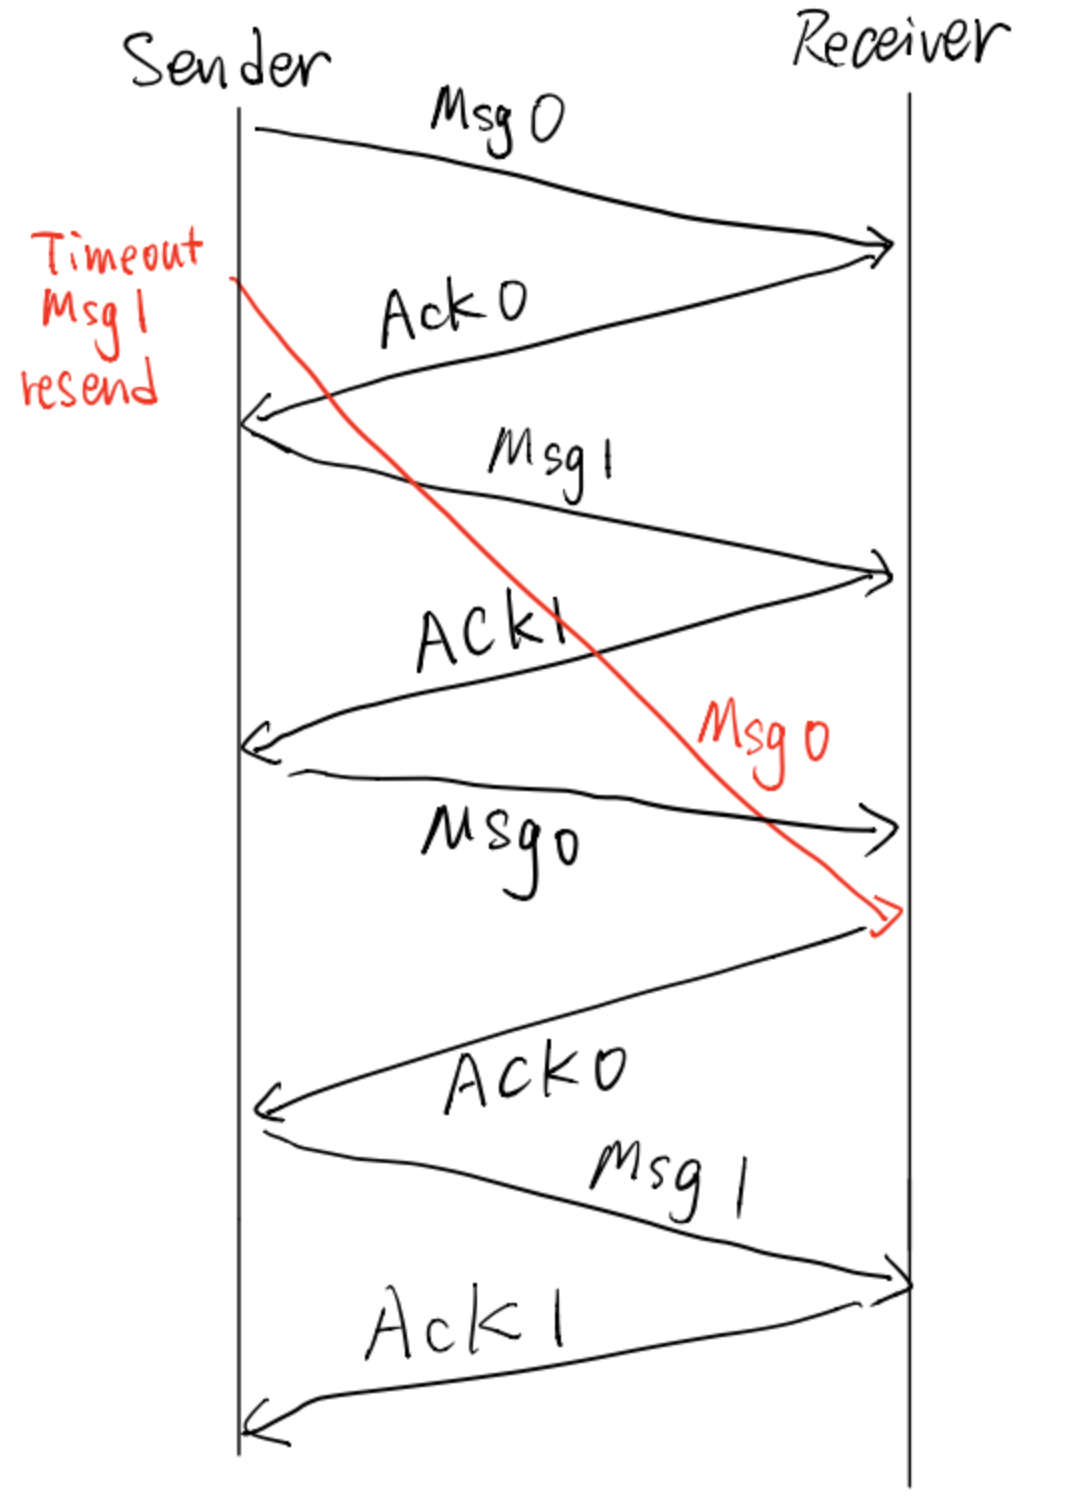 Sender
Receiver
Msg 0
Timeout
Msg 1
resend
Ack 0
Msg 1
ACK 1
Msg 0
Msg 0
Ack 0
Msg 1
Ack 1